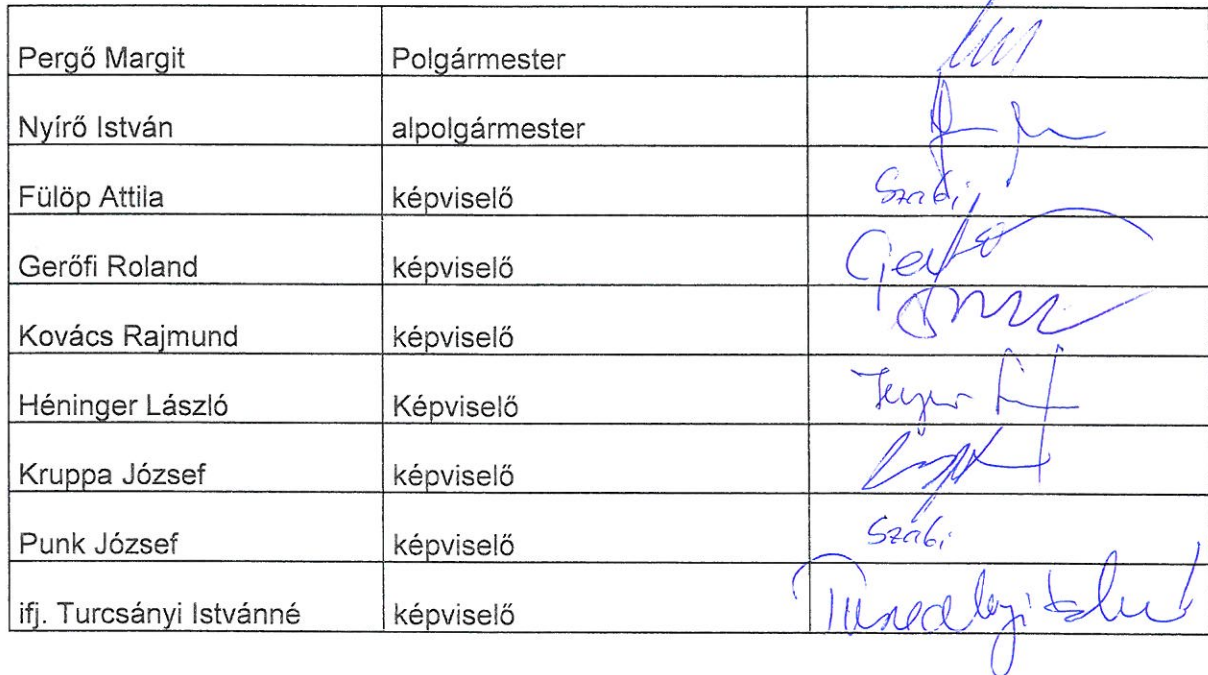 Pergő Margit Polgármester
Nyírő István alpolgármester
Fülöp Attila képviselő Szabi
Gerőfi Roland képviselő
Kovács Rajmund képviselő
Héninger László Képviselő
Kruppa József képviselő
Punk József képviselő Szabi
ifj. Turcsányi Istvánné képviselő